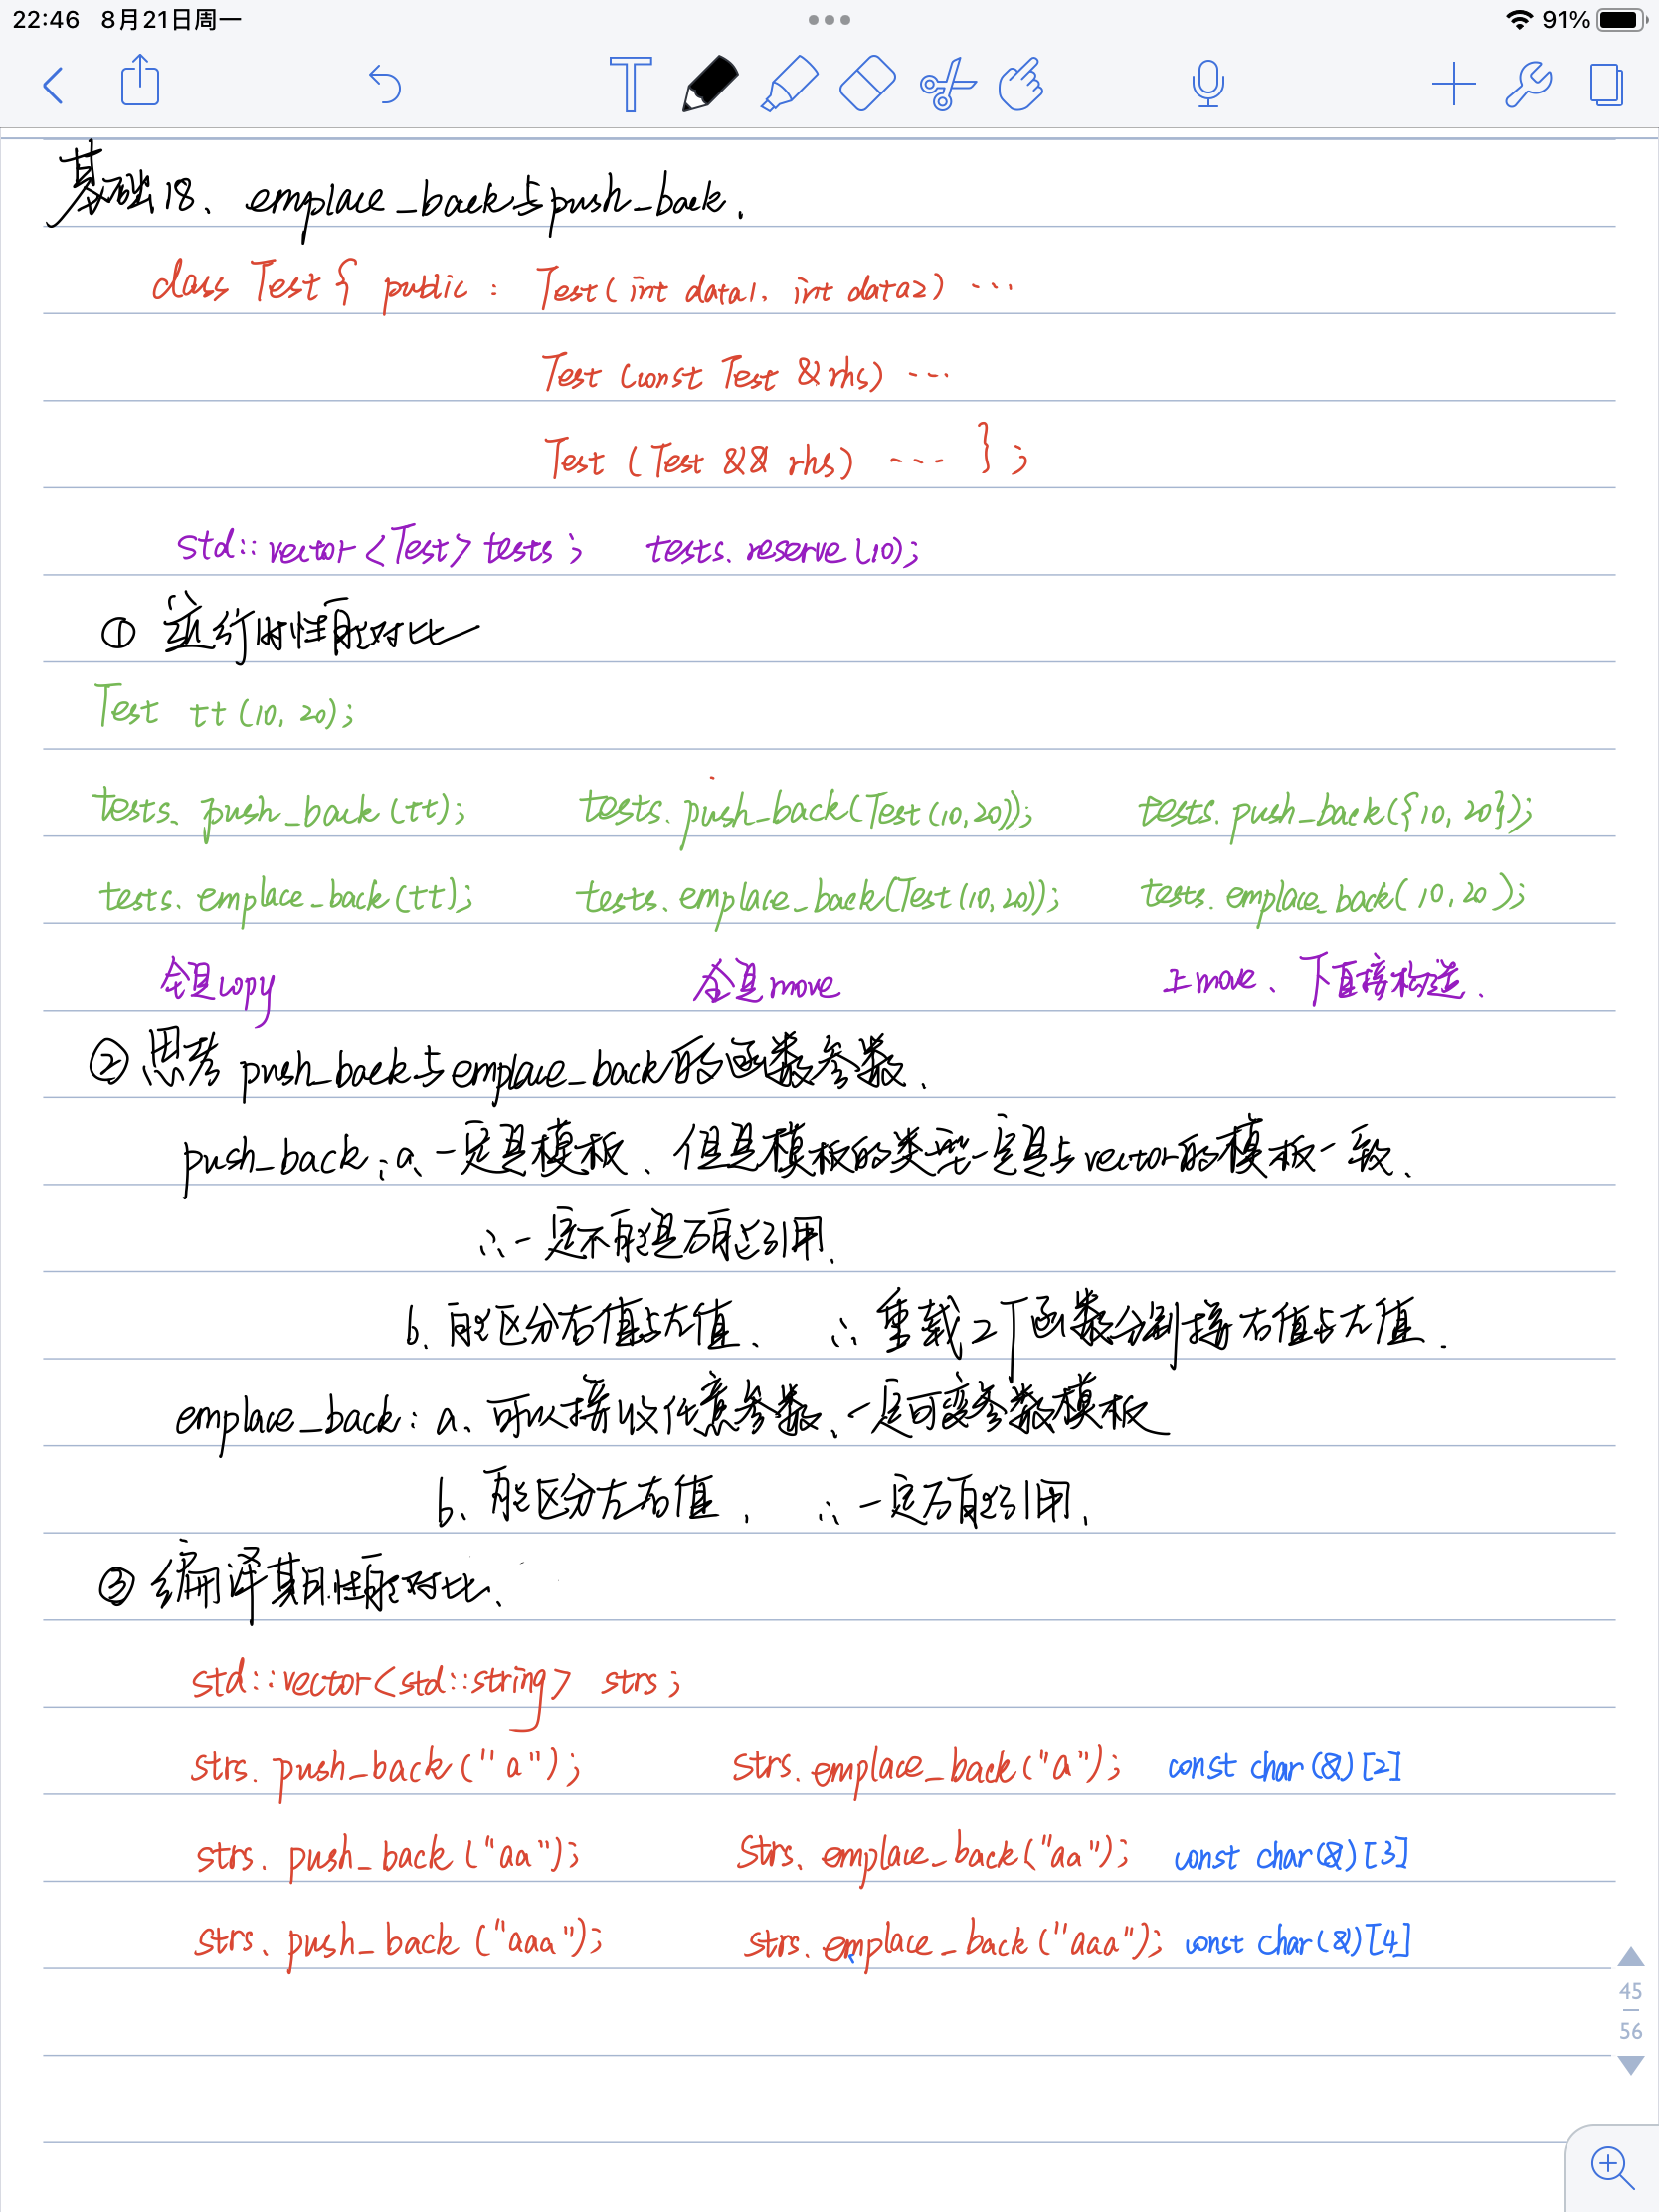 22:46 8月21日周一
91%
基础18、emplace_back与push_back.
class Test { public : Test(int data1, int data2) ...
Test (const Test &rhs) ...
Test (Test && rhs) ... } ;
std::vector<Test> tests ; tests.reserve(10);
① 运行时性能对比
Test tt (10, 20);
tests.push_back(tt); tests.push_back(Test(10,20)); tests.push_back({10, 20});
tests.emplace_back(tt); tests.emplace_back(Test(10,20)); tests.emplace_back(10,20);
全是copy 全是move 上move、下直接构造.
② 思考push_back与emplace_back的函数参数.
push_back: a、一定是模板、但是模板的类型一定是与vector的模板一致、
∴一定不能是万能引用.
b、能区分右值与左值、 ∴重载2个函数分别接右值与左值.
emplace_back: a、可以接收任意参数、一定可变参数模板
b、能区分左右值. ∴一定万能引用.
③ 编译期性能对比、
std::vector<std::string> strs;
strs.push_back("a"); strs.emplace_back("a"); const char(&)[2]
strs.push_back("aa"); strs.emplace_back("aa"); const char(&)[3]
strs.push_back("aaa"); strs.emplace_back("aaa"); const char(&)[4]
45
56